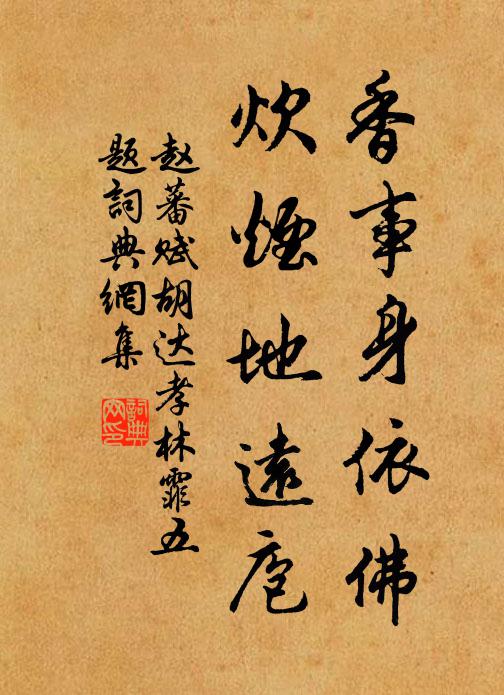 香事身依佛
炊煙地遠庖
赵蕃赋胡达孝林霏五
题詞典網集
詞典網印